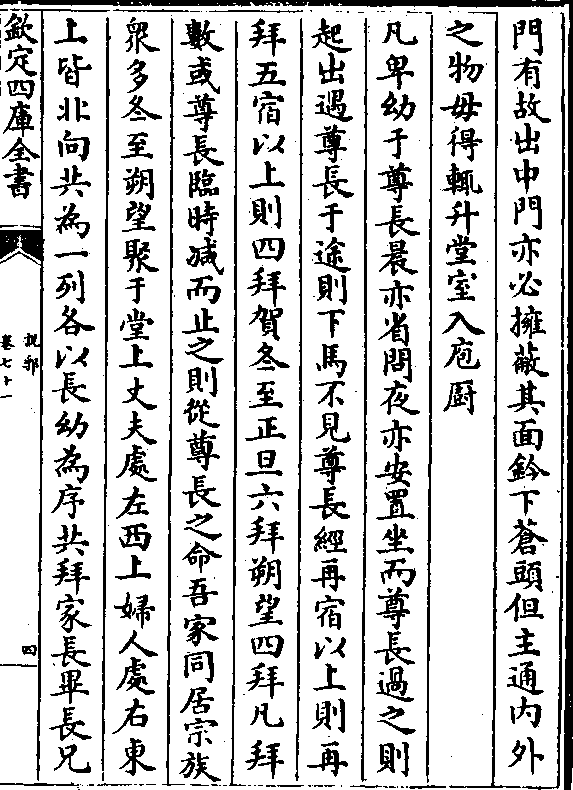 門有故出中門亦必擁蔽其面鈐下蒼頭但主通内外
之物毋得輒升堂室入庖厨
凡卑幼于尊長晨亦省問夜亦安置坐而尊長過之則
起出遇尊長于途則下馬不見尊長經再宿以上則再
拜五宿以上則四拜賀冬至正旦六拜朔望四拜凡拜
數或尊長臨時減而止之則從尊長之命吾家同居宗族
衆多冬至朔望聚于堂上丈夫處左西上婦人處右東
上皆北向共為一列各以長幼為序共拜家長畢長兄
欽定四庫全書
說郛
卷七十一
四